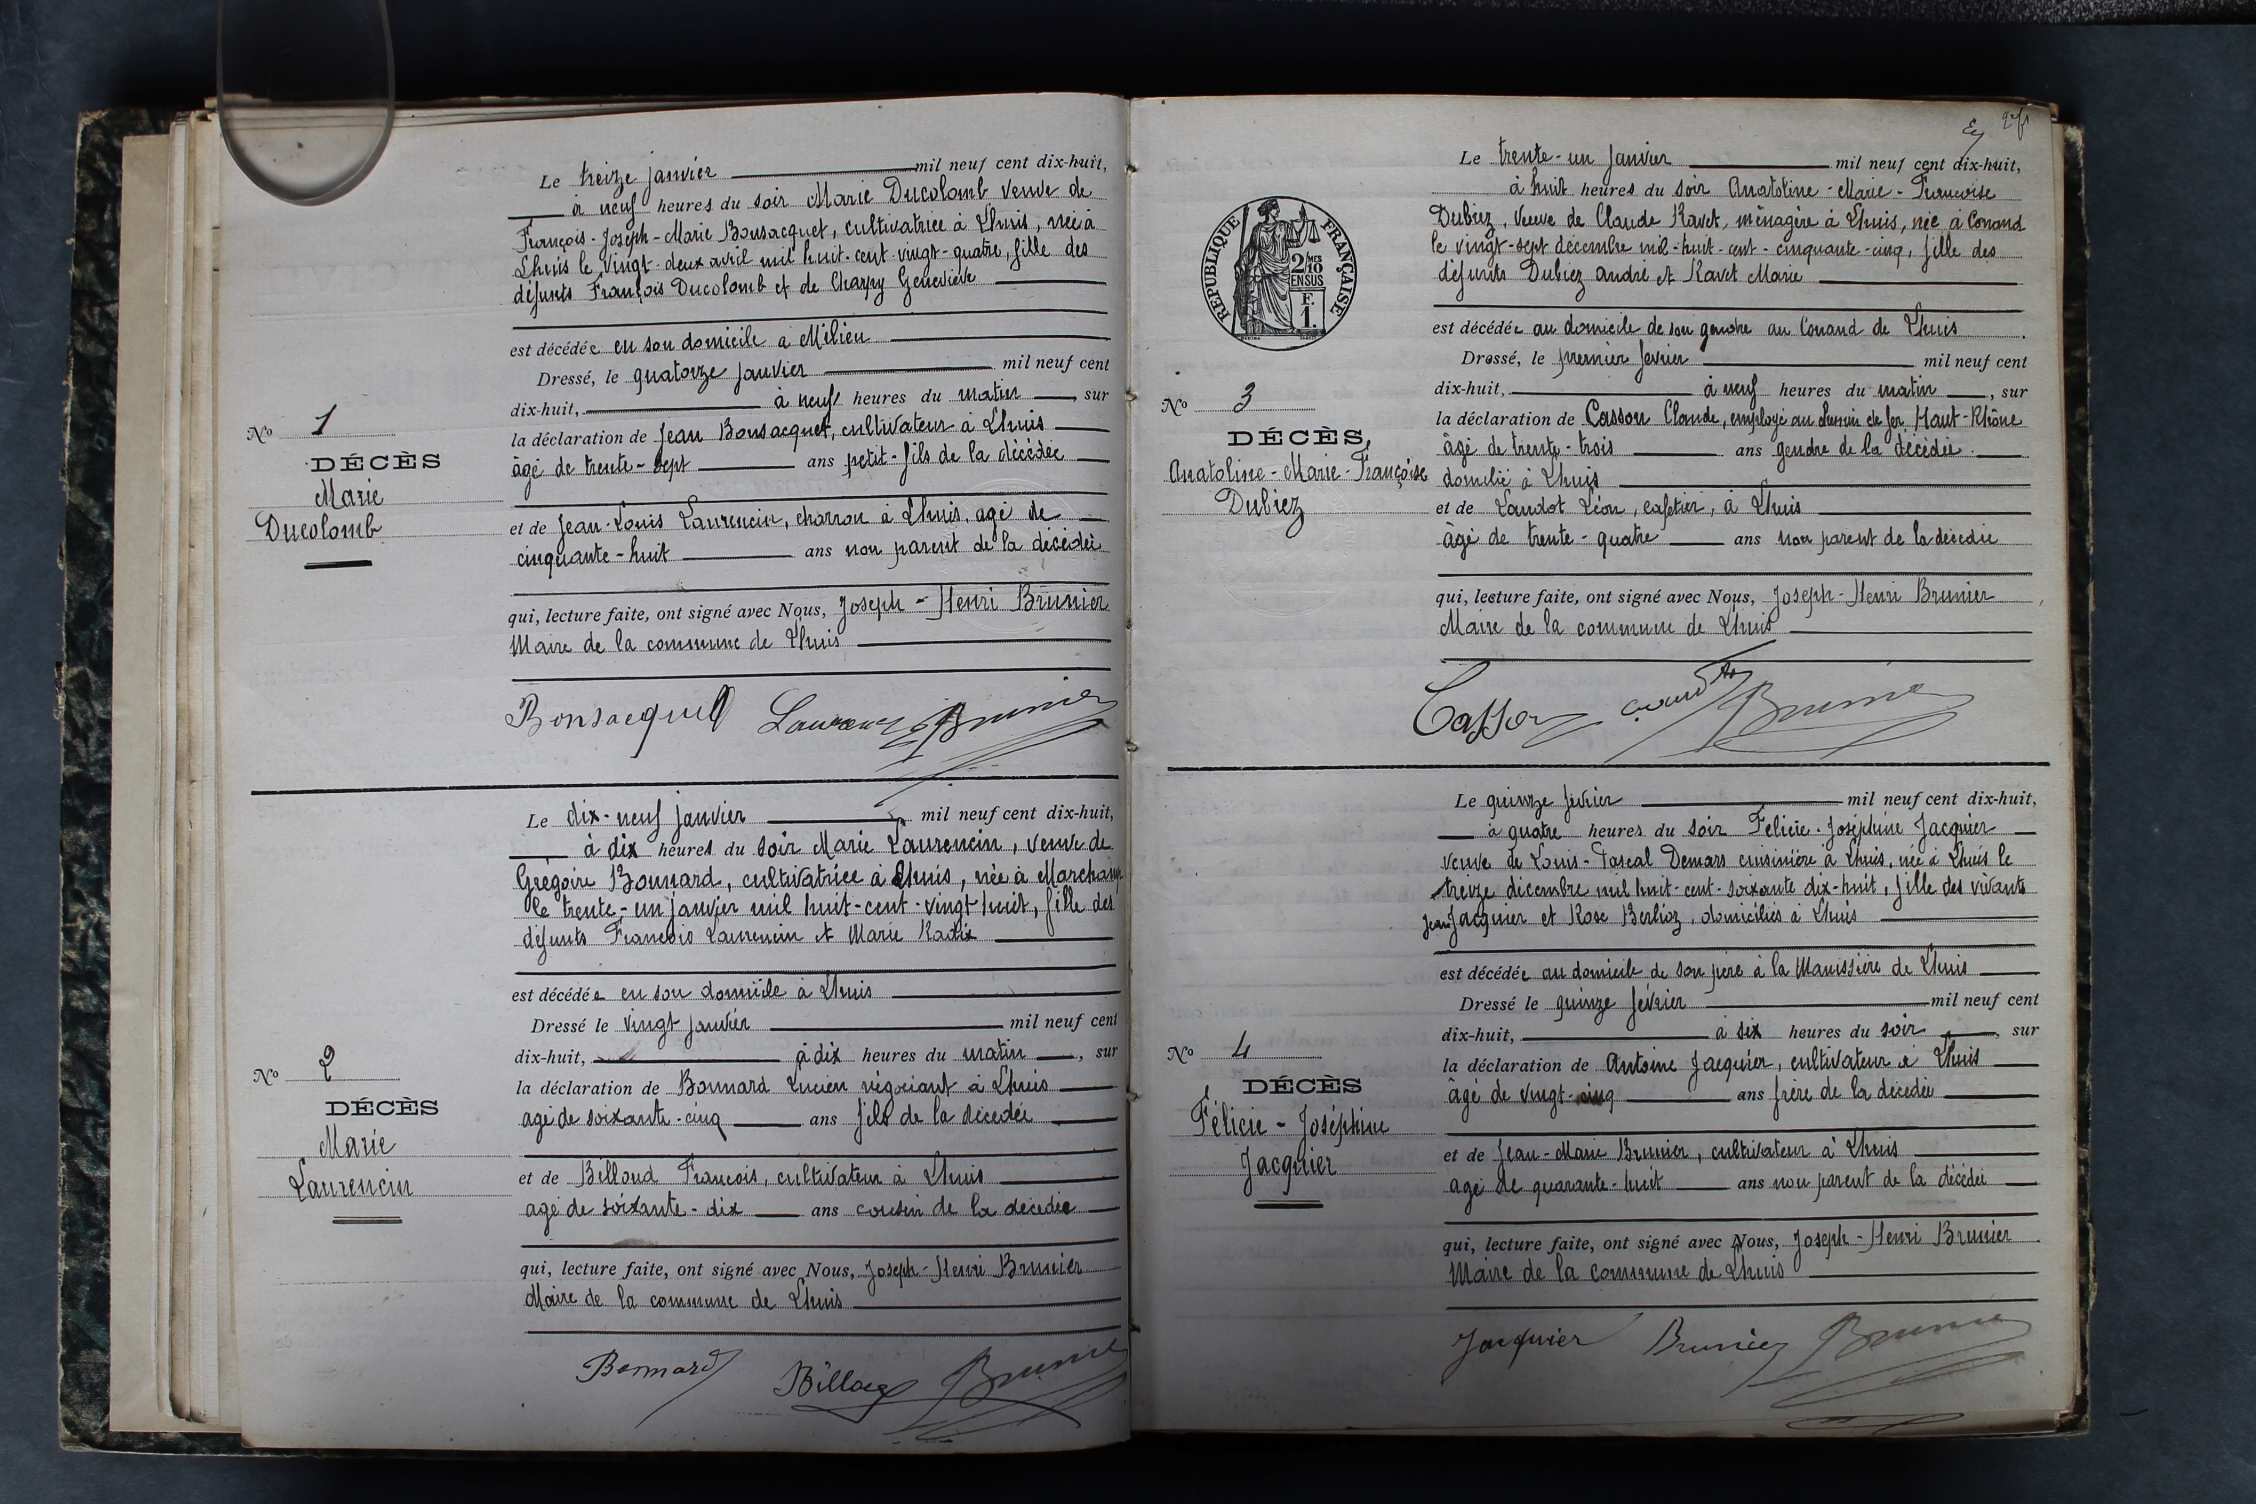 Le treize janvier mil neuf cent dix-huit,
à neuf heures du soir Marie Ducolomb veuve de
François-Joseph-Marie Bonsacquet, cultivatrice à Lhuis, née à
Lhuis le vingt-deux avril mil huit-cent-vingt-quatre, fille des
défunts François Ducolomb et de Charpy Geneviève
est décédée en son domicile à Milieu
Dressé, le quatorze janvier mil neuf cent
dix-huit, à neuf heures du matin, sur
la déclaration de Jean Bonsacquet, cultivateur à Lhuis
âgé de trente-sept ans petit-fils de la décédée
et de Jean-Louis Laurencin, charron à Lhuis, agé de
cinquante-huit ans non parent de la décédée
qui, lecture faite, ont signé avec Nous, Joseph-Henri Brunier
Maire de la commune de Lhuis
Bonsacquet Laurencin Brunier
No 1
DÉCÈS
Marie
Ducolomb
Le dix-neuf janvier mil neuf cent dix-huit,
à dix heures du soir Marie Laurencin, veuve de
Grégoire Bonnard, cultivatrice à Lhuis, née à Marchamp
le trente-un janvier mil huit-cent-vingt-huit, fille des
défunts François Laurencin et Marie
est décédée en son domicile à Lhuis
Dressé le vingt janvier mil neuf cent
dix-huit, à dix heures du matin, sur
la déclaration de Bonnard Lucien négociant à Lhuis
agé de soixante-cinq ans fils de la décédée
et de Billoud François, cultivateur à Lhuis
agé de soixante-dix ans cousin de la décédée
qui, lecture faite, ont signé avec Nous, Joseph-Henri Brunier
Maire de la commune de Lhuis
Bonnard Brunier
No 2
DÉCÈS
Marie
Laurencin
REPUBLIQUE FRANÇAISE
2/10 MES
EN SUS
F.
1.
Le trente-un janvier mil neuf cent dix-huit,
à huit heures du soir Anatoline-Marie-Françoise
Dubiez, veuve de Claude Ravet, ménagère à Lhuis, née à Conand
le vingt-sept décembre mil-huit-cent-cinquante-cinq, fille des
défunts Dubiez andré et Ravet Marie
est décédée au domicile de son gendre au Conand de Lhuis
Dressé, le premier février mil neuf cent
dix-huit, à neuf heures du matin, sur
la déclaration de Casson Claude, employé au chemin de fer Haut-Rhône
âgé de trente-trois ans gendre de la décédée
domilié à Lhuis
et de Landot Léon, cafetier, à Lhuis
âgé de trente-quatre ans non parent de la décédée
qui, lecture faite, ont signé avec Nous, Joseph-Henri Brunier
Maire de la commune de Lhuis
Casson Brunier
No 3
DÉCÈS
Anatoline-Marie-Françoise
Dubiez
Le quinze février mil neuf cent dix-huit,
à quatre heures du soir Felicie-Joséphine Jacquier
veuve de Louis-Pascal Demars cuisinière à Lhuis, née à Lhuis le
treize décembre mil huit-cent-soixante dix-huit, fille des vivants
Jean Jacquier et Rose Berlioz, domiciliés à Lhuis
est décédée au domicile de son père à la Manissière de Lhuis
Dressé le quinze février mil neuf cent
dix-huit, à six heures du soir, sur
la déclaration de Antoine Jacquier, cultivateur à Lhuis
âgé de vingt-cinq ans frère de la décédée
et de Jean-Marie Brunier, cultivateur à Lhuis
agé de quarante-huit ans non parent de la décédée
qui, lecture faite, ont signé avec Nous, Joseph-Henri Brunier
Maire de la commune de Lhuis
Jacquier Brunier Brunier
No 4
DÉCÈS
Félicie-Joséphine
Jacquier